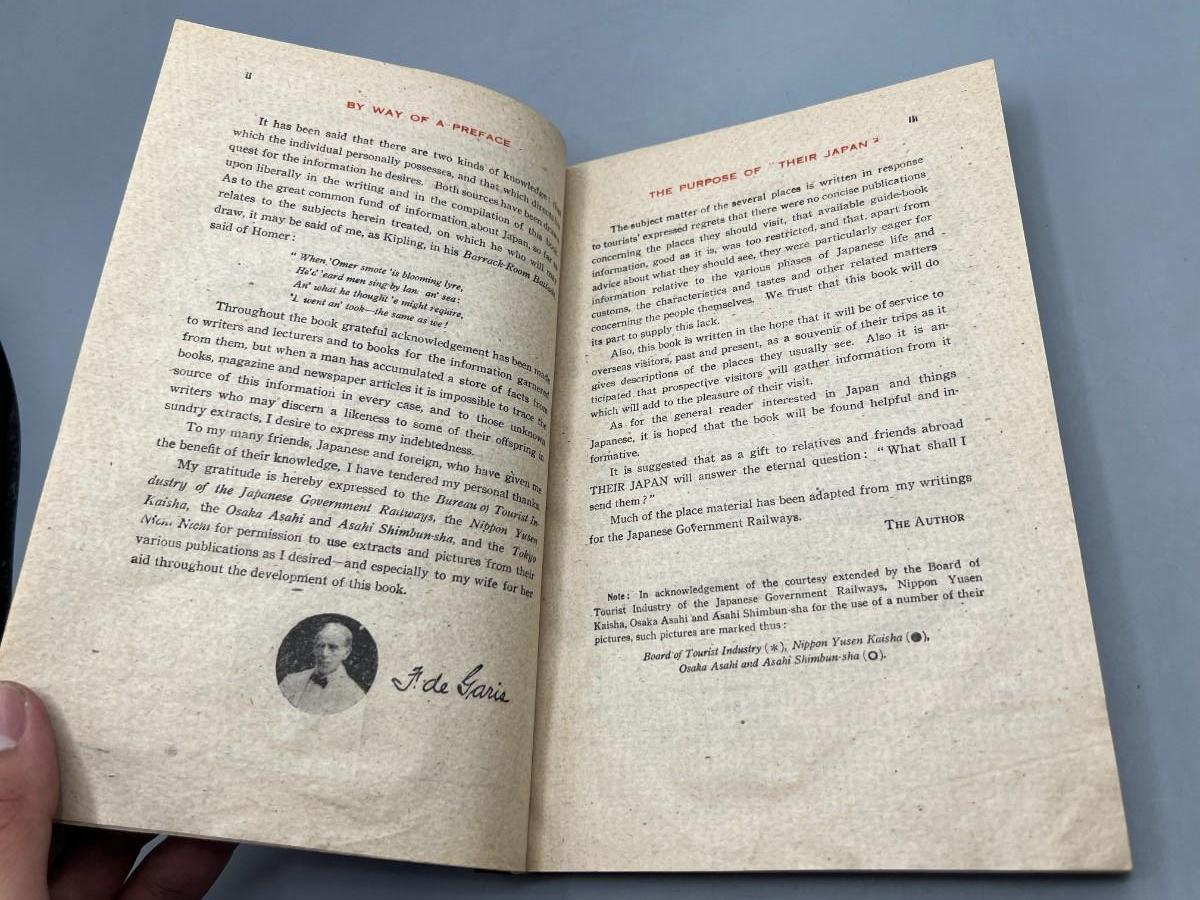 ii
BY WAY OF A PREFACE
It has been said that there are two kinds of knowledge: that
which the individual personally possesses, and that which directs his
quest for the information he desires. Both sources have been drawn
upon liberally in the writing and in the compilation of this book.
As to the great common fund of information about Japan, so far as
relates to the subjects herein treated, on which he who will may
draw, it may be said of me, as Kipling, in his Barrack-Room Ballads,
said of Homer:
"When 'Omer smote 'is blooming lyre,
He'd 'eard men sing by lan' an' sea:
An' what he thought 'e might require,
'E went an' took—the same as we!
Throughout the book grateful acknowledgement has been made
to writers and lecturers and to books for the information garnered
from them, but when a man has accumulated a store of facts from
books, magazine and newspaper articles it is impossible to trace the
source of this information in every case, and to those unknown
writers who may discern a likeness to some of their offspring in
sundry extracts, I desire to express my indebtedness.
To my many friends, Japanese and foreign, who have given me
the benefit of their knowledge, I have tendered my personal thanks.
My gratitude is hereby expressed to the Bureau of Tourist In-
dustry of the Japanese Government Railways, the Nippon Yusen
Kaisha, the Osaka Asahi and Asahi Shimbun-sha, and the Tokyo
Nichi Nichi for permission to use extracts and pictures from their
various publications as I desired—and especially to my wife for her
aid throughout the development of this book.
F. de Garis
iii
THE PURPOSE OF "THEIR JAPAN"
The subject matter of the several places is written in response
to tourists' expressed regrets that there were no concise publications
concerning the places they should visit, that available guide-book
information, good as it is, was too restricted, and that, apart from
advice about what they should see, they were particularly eager for
information relative to the various phases of Japanese life and
customs, the characteristics and tastes and other related matters
concerning the people themselves. We trust that this book will do
its part to supply this lack.
Also, this book is written in the hope that it will be of service to
overseas visitors, past and present, as a souvenir of their trips as it
gives descriptions of the places they usually see. Also it is an-
ticipated that prospective visitors will gather information from it
which will add to the pleasure of their visit.
As for the general reader interested in Japan and things
Japanese, it is hoped that the book will be found helpful and in-
formative.
It is suggested that as a gift to relatives and friends abroad
THEIR JAPAN will answer the eternal question: "What shall I
send them?"
Much of the place material has been adapted from my writings
for the Japanese Government Railways.
THE AUTHOR
Note: In acknowledgement of the courtesy extended by the Board of
Tourist Industry of the Japanese Government Railways, Nippon Yusen
Kaisha, Osaka Asahi and Asahi Shimbun-sha for the use of a number of their
pictures, such pictures are marked thus:
Board of Tourist Industry (*), Nippon Yusen Kaisha (●),
Osaka Asahi and Asahi Shimbun-sha (○).